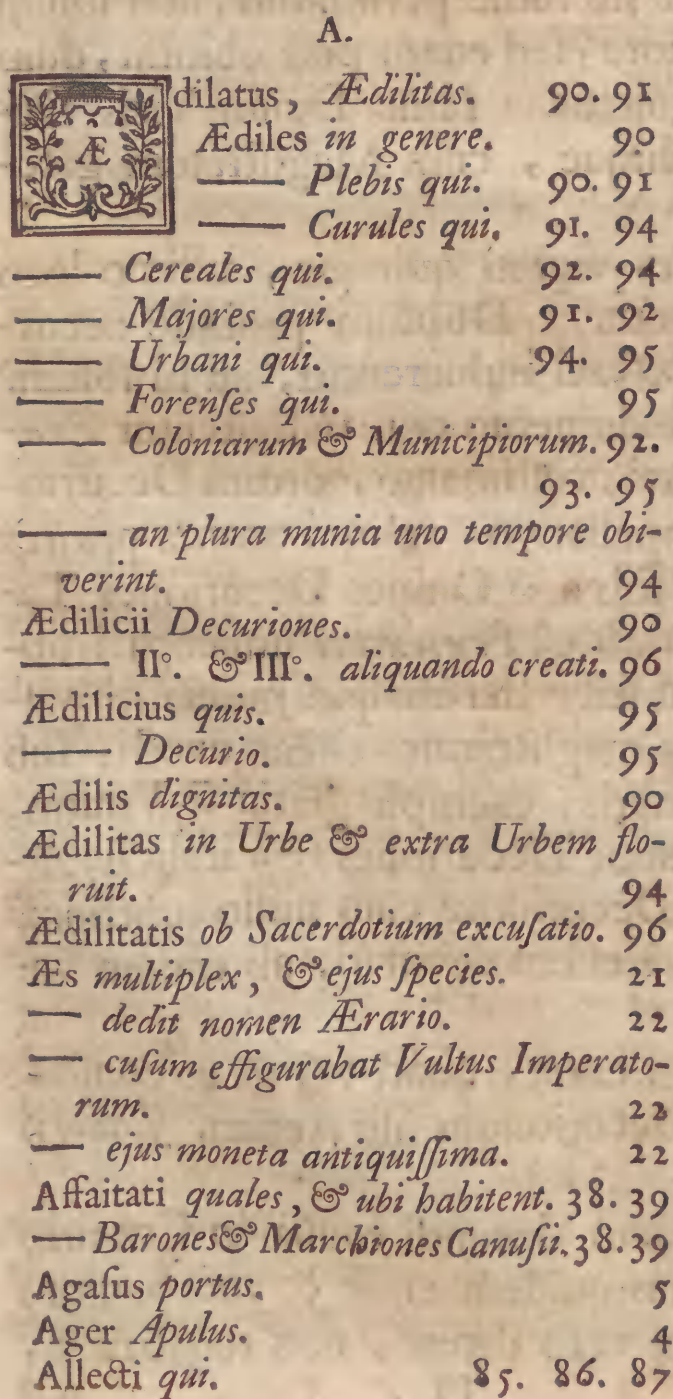 A.
Ædilatus, Ædilitas. 90. 91
Ædiles in genere. 90
—— Plebis qui. 90. 91
—— Curules qui. 91. 94
—— Cereales qui. 92. 94
—— Majores qui. 91. 92
—— Urbani qui. 94. 95
—— Forenſes qui. 95
—— Coloniarum & Municipiorum. 92.
93. 95
—— an plura munia uno tempore obi-
verint. 94
Ædilicii Decuriones. 90
—— II°. & III°. aliquando creati. 96
Ædilicius quis. 95
—— Decurio. 95
Ædilis dignitas. 90
Ædilitas in Urbe & extra Urbem flo-
ruit. 94
Ædilitatis ob Sacerdotium excuſatio. 96
Æs multiplex, & ejus ſpecies. 21
— dedit nomen Ærario. 22
— cuſum effigurabat Vultus Imperato-
rum. 22
— ejus moneta antiquiſſima. 22
Affaitati quales, & ubi habitent. 38. 39
— Barones & Marchiones Canuſii. 38. 39
Agaſus portus. 5
Ager Apulus. 4
Allecti qui. 85. 86. 87